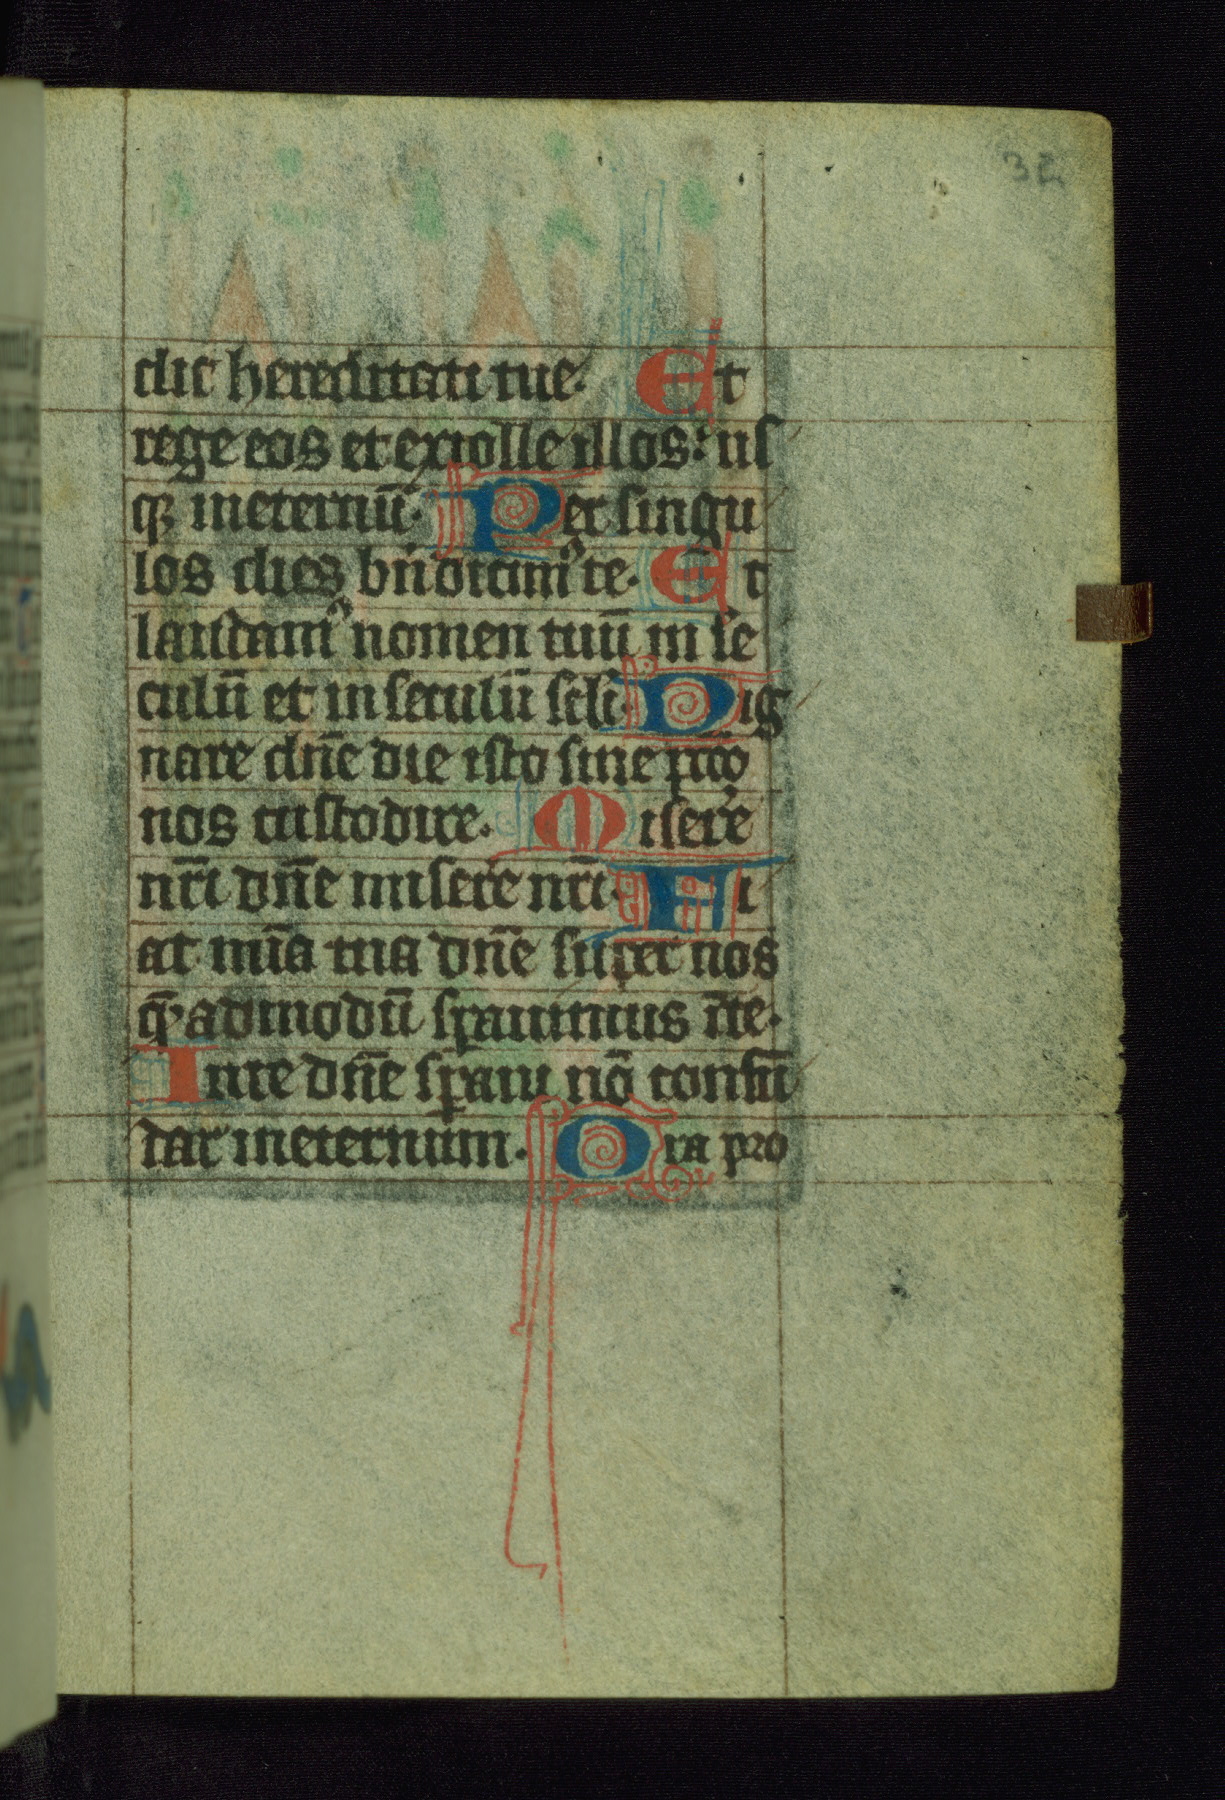 32
dic hereditati tue. Et
rege eos et extolle illos: us
qꝫ ineternū. Per singu
los dies bn̄dicimꝰ te. Et
laudamꝰ nomen tuū in se
culū et in seculū scl̄i. Dig
nare dn̄e die isto sine pcc̄o
nos custodire. Misere
nr̄i dn̄e misere nr̄i. Fi
at mīa tua dn̄e super nos
qͫadmodū sꝑauimus īte.
Inte dn̄e sꝑaui nō confū
dar ineternum. Ora pro